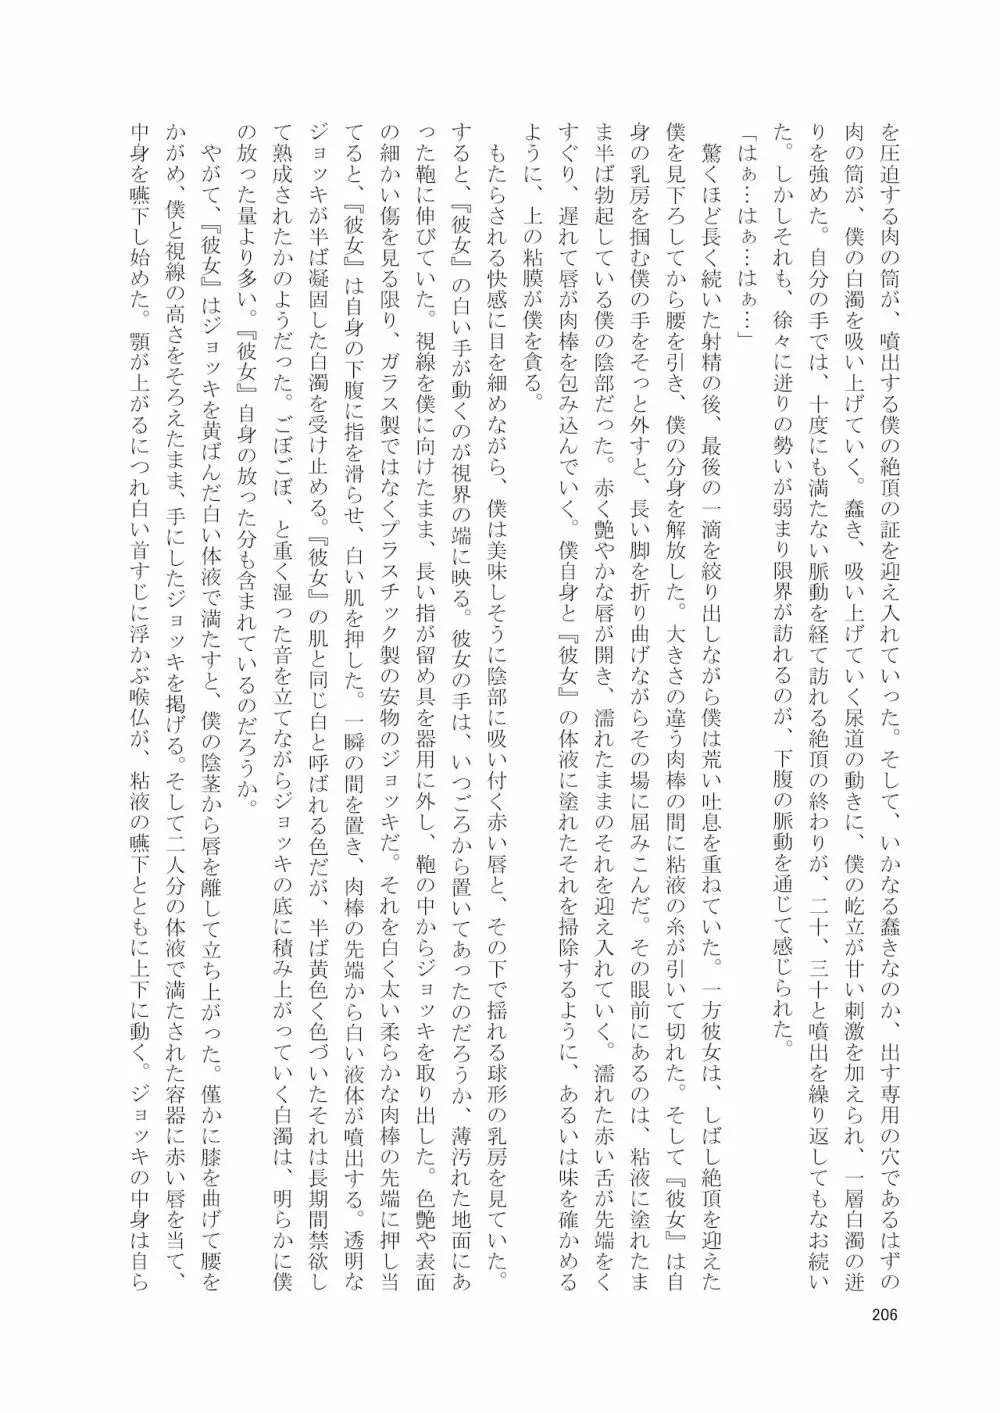 を圧迫する肉の筒が、噴出する僕の絶頂の証を迎え入れていった。そして、いかなる蠢きなのか、出す専用の穴であるはずの
肉の筒が、僕の白濁を吸い上げていく。蠢き、吸い上げていく尿道の動きに、僕の屹立が甘い刺激を加えられ、一層白濁の迸
りを強めた。自分の手では、十度にも満たない脈動を経て訪れる絶頂の終わりが、二十、三十と噴出を繰り返してもなお続い
た。しかしそれも、徐々に迸りの勢いが弱まり限界が訪れるのが、下腹の脈動を通じて感じられた。
「はぁ…はぁ…はぁ…」
驚くほど長く続いた射精の後、最後の一滴を絞り出しながら僕は荒い吐息を重ねていた。一方彼女は、しばし絶頂を迎えた
僕を見下ろしてから腰を引き、僕の分身を解放した。大きさの違う肉棒の間に粘液の糸が引いて切れた。そして『彼女』は自
身の乳房を掴む僕の手をそっと外すと、長い脚を折り曲げながらその場に屈みこんだ。その眼前にあるのは、粘液に塗れたま
ま半ば勃起している僕の陰部だった。赤く艶やかな唇が開き、濡れたままのそれを迎え入れていく。濡れた赤い舌が先端をく
すぐり、遅れて唇が肉棒を包み込んでいく。僕自身と『彼女』の体液に塗れたそれを掃除するように、あるいは味を確かめる
ように、上の粘膜が僕を貪る。
もたらされる快感に目を細めながら、僕は美味しそうに陰部に吸い付く赤い唇と、その下で揺れる球形の乳房を見ていた。
すると、『彼女』の白い手が動くのが視界の端に映る。彼女の手は、いつごろから置いてあったのだろうか、薄汚れた地面にあ
った鞄に伸びていた。視線を僕に向けたまま、長い指が留め具を器用に外し、鞄の中からジョッキを取り出した。色艶や表面
の細かい傷を見る限り、ガラス製ではなくプラスチック製の安物のジョッキだ。それを白く太い柔らかな肉棒の先端に押し当
てると、『彼女』は自身の下腹に指を滑らせ、白い肌を押した。一瞬の間を置き、肉棒の先端から白い液体が噴出する。透明な
ジョッキが半ば凝固した白濁を受け止める。『彼女』の肌と同じ白と呼ばれる色だが、半ば黄色く色づいたそれは長期間禁欲し
て熟成されたかのようだった。ごぼごぼ、と重く湿った音を立てながらジョッキの底に積み上がっていく白濁は、明らかに僕
の放った量より多い。『彼女』自身の放った分も含まれているのだろうか。
やがて、『彼女』はジョッキを黄ばんだ白い体液で満たすと、僕の陰茎から唇を離して立ち上がった。僅かに膝を曲げて腰を
かがめ、僕と視線の高さをそろえたまま、手にしたジョッキを掲げる。そして二人分の体液で満たされた容器に赤い唇を当て、
中身を嚥下し始めた。顎が上がるにつれ白い首すじに浮かぶ喉仏が、粘液の嚥下とともに上下に動く。ジョッキの中身は自ら
206